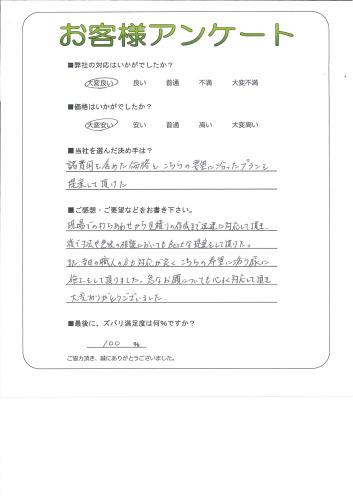 お客様アンケート
■弊社の対応はいかがでしたか？
大変良い 良い 普通 不満 大変不満
■価格はいかがでしたか？
大変安い 安い 普通 高い 大変高い
■当社を選んだ決め手は？
諸費用を含めた価格と こちらの要望に沿ったプランを
提案して頂けた
■ご感想・ご要望などをお書き下さい。
現場での打ちあわせから見積りの作成まで迅速に対応して頂き
においても な提案をして頂けた。
また、当日の職人の方も対応が良く こちらの希望に沿う様に
施工をして頂けました。急なお願いについても心よく対応して頂き
大変ありがとうございました。
■最後に、ズバリ満足度は何％ですか？
100 %
ご協力頂き、誠にありがとうございました。